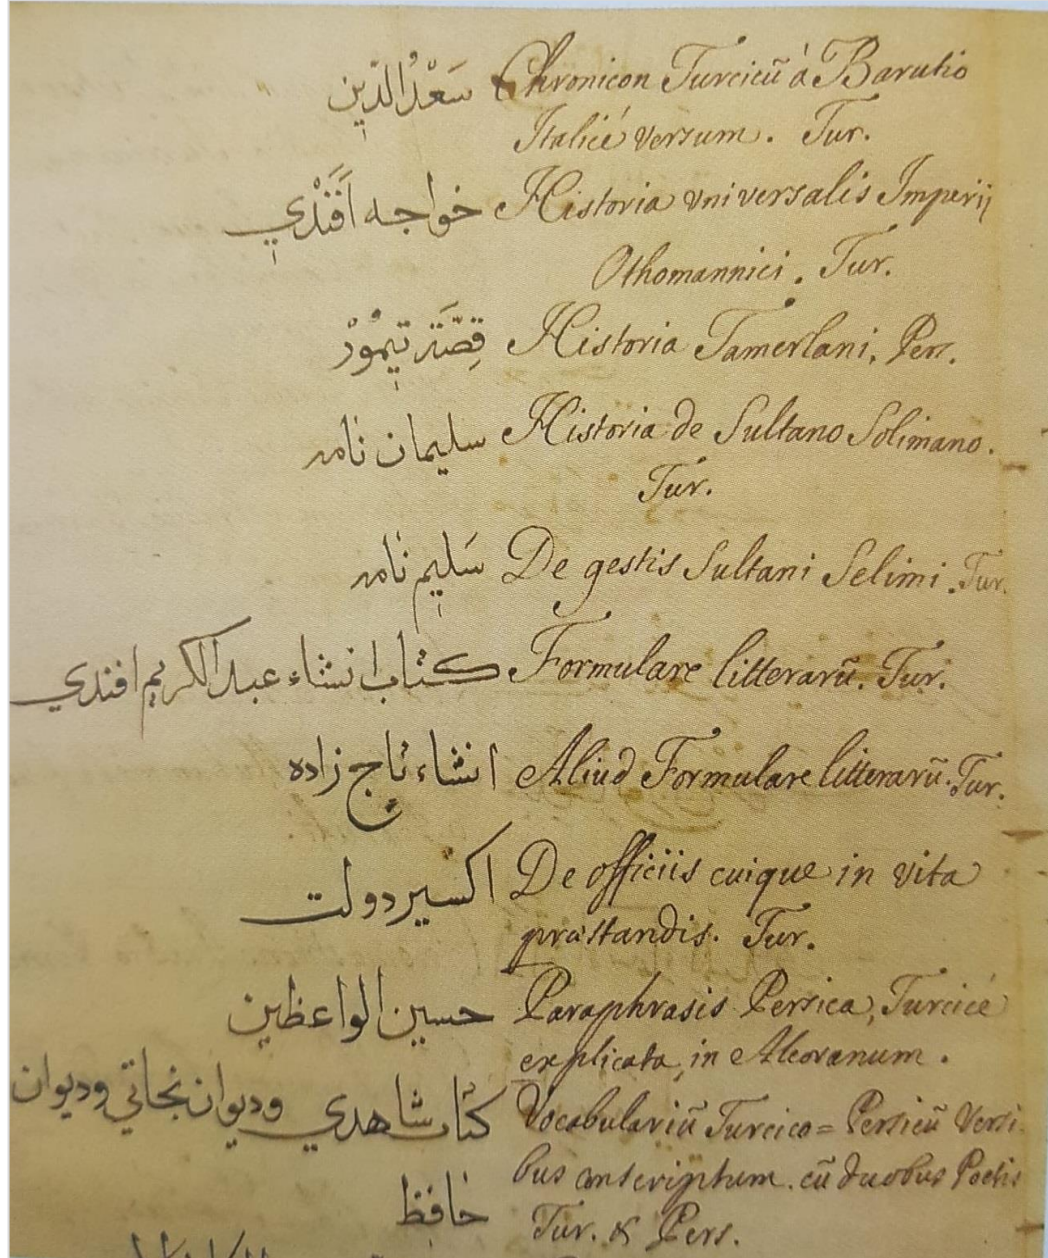 سَعْدُالدّيِنِ Chronicon Turcicū à Barutio
Italicé versum. Tur.
خواجه اَفَنْديِ Historia vniversalis Imperij
Othomannici. Tur.
قِصَّة تيِمُورْ Historia Tamerlani. Pers.
سليمان نامه Historia de Sultano Solimano.
Tur.
سَليِم نامه De gestis Sultani Selimi. Tur.
كتاب انشاء عبد الكريم افندي Formulare litterarū. Tur.
انشاء تاجِ زاده Aliud Formulare litterarū. Tur.
اكسير دولت De officiis cuique in vita
præstandis. Tur.
حسين الواعظين Paraphrasis Persica, Turcicé
explicata, in Alcoranum.
كتاب شاهدي وديوان نجاتي وديوان Vocabulariū Turcico=Persicū Versi
حافظ bus conscriptum. cū duobus Poetis
Tur. & Pers.